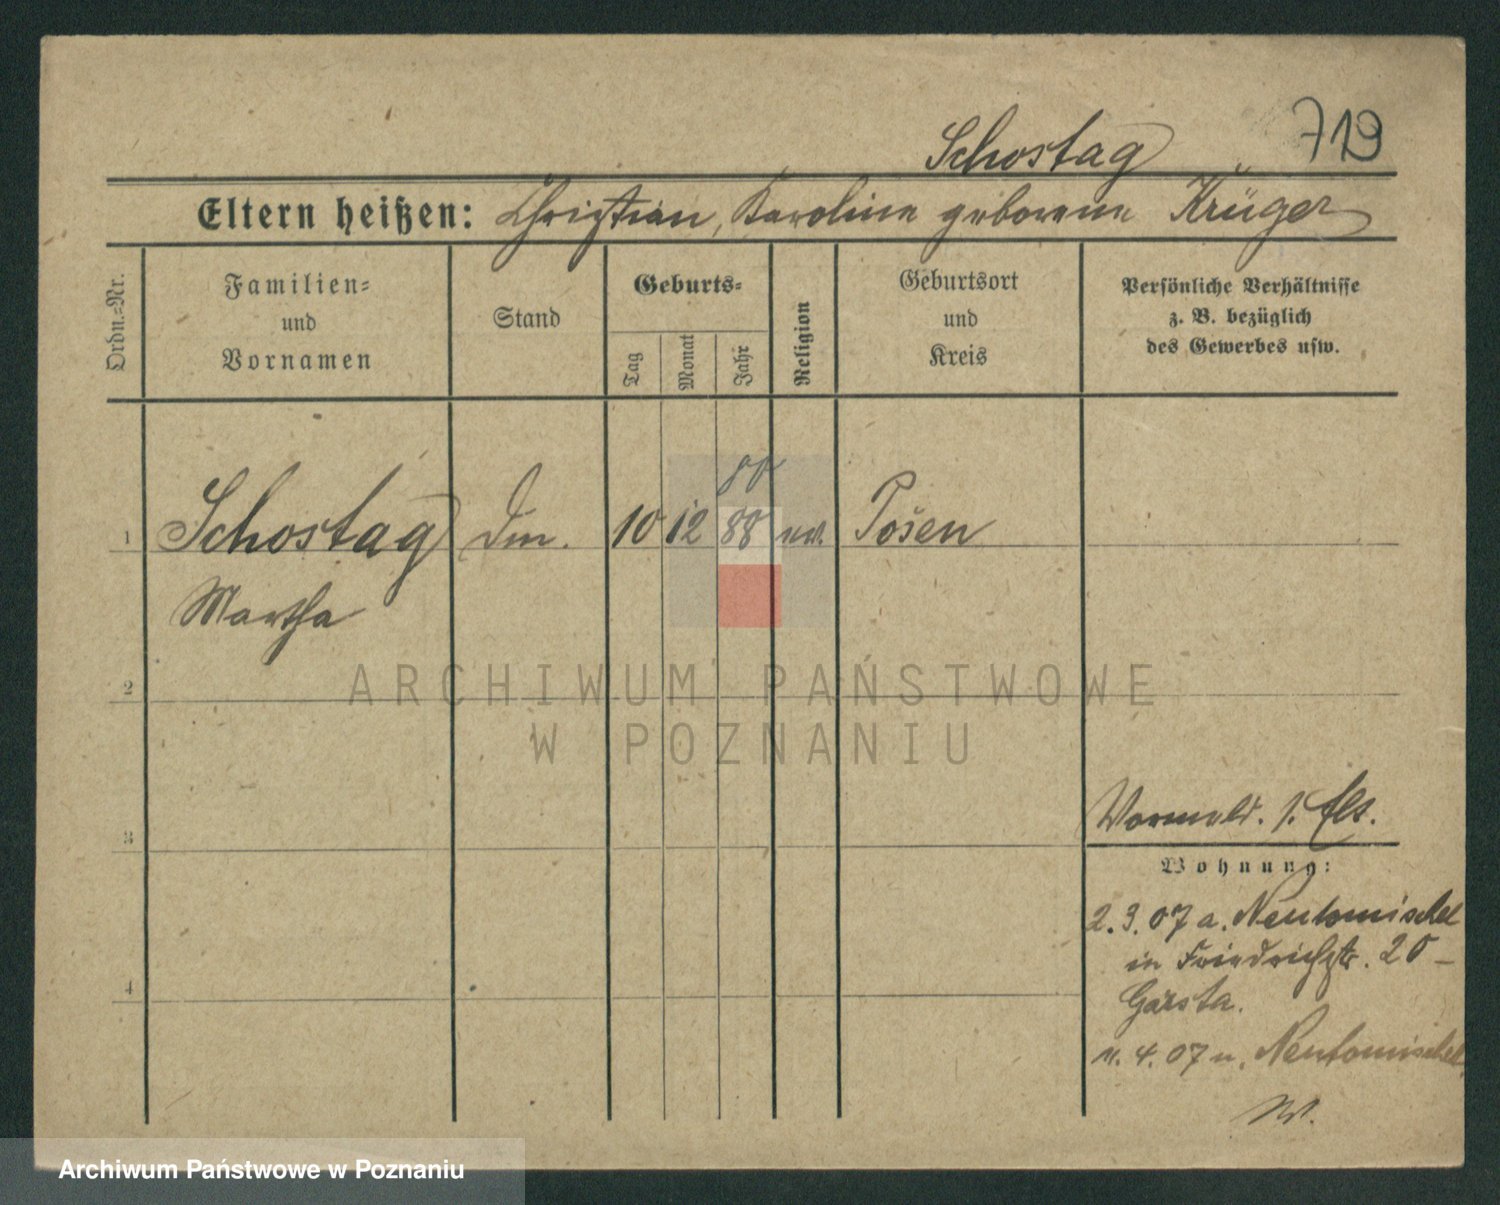 719
Schostag
Eltern heißen: Christian, Karoline geborene Krüger
Ordn.=Nr.
Familien=
und
Vornamen
Stand
Geburts=
Tag
Monat
Jahr
Religion
Geburtsort
und
Kreis
Persönliche Verhältnisse
z. B. bezüglich
des Gewerbes usw.
1
Schostag
10 12 88
Posen
Martha
2
ARCHIWUM PAŃSTWOWE
W POZNANIU
3
Wohnung:
2.3.07 a. Neutomischel
in Friedrichstr. 20 –
4
4. 07 n. Neutomischel
Archiwum Państwowe w Poznaniu